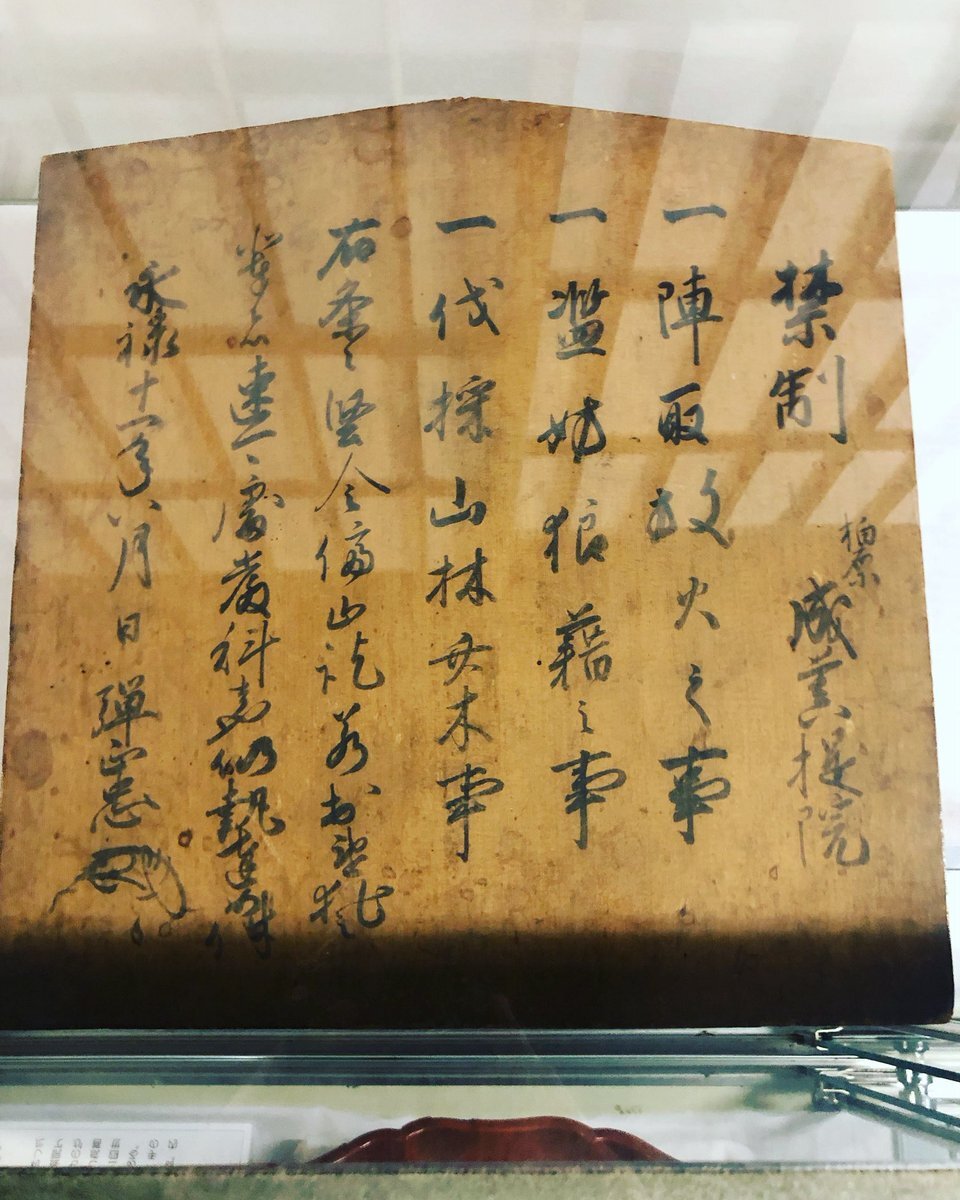 禁制 柏原 成菩提院
一陣取放火之事
一濫妨狼藉之事
一伐採山林竹木事
右条々堅令停止訖若於違犯
輩者速可處厳科者也仍執達如件
永禄十一年八月日 弾正忠